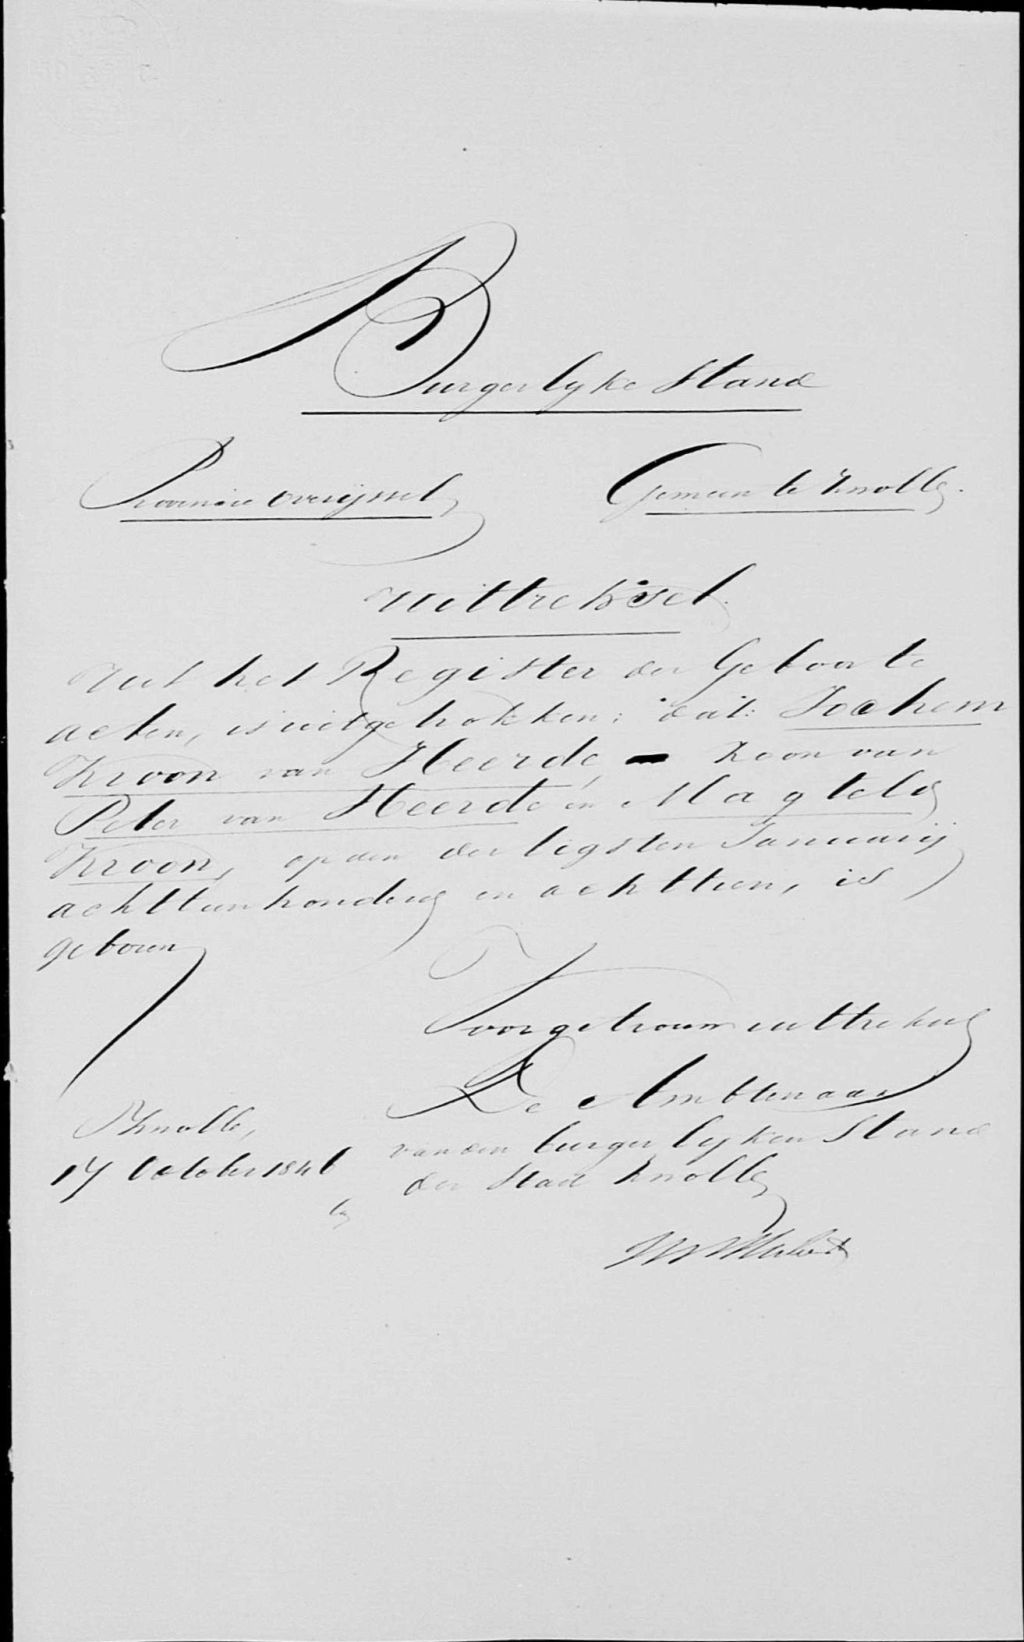 Burgerlyke Stand
Provincie Overijssel
Gemeente Zwolle.
Uittreksel.
Uit het Register der Geboorte
acten, is uitgetrokken; dat: Jochem
Kroon van Heerde, — Zoon van
Peter van Heerde en Magteld
Kroon, op den dertigsten Januarij
achttienhonderd en achttien, is
geboren
Voor getrouw uittreksel
De Ambtenaar
van den burgerlyken Stand
der Stad Zwolle
Zwolle,
17 October 1846